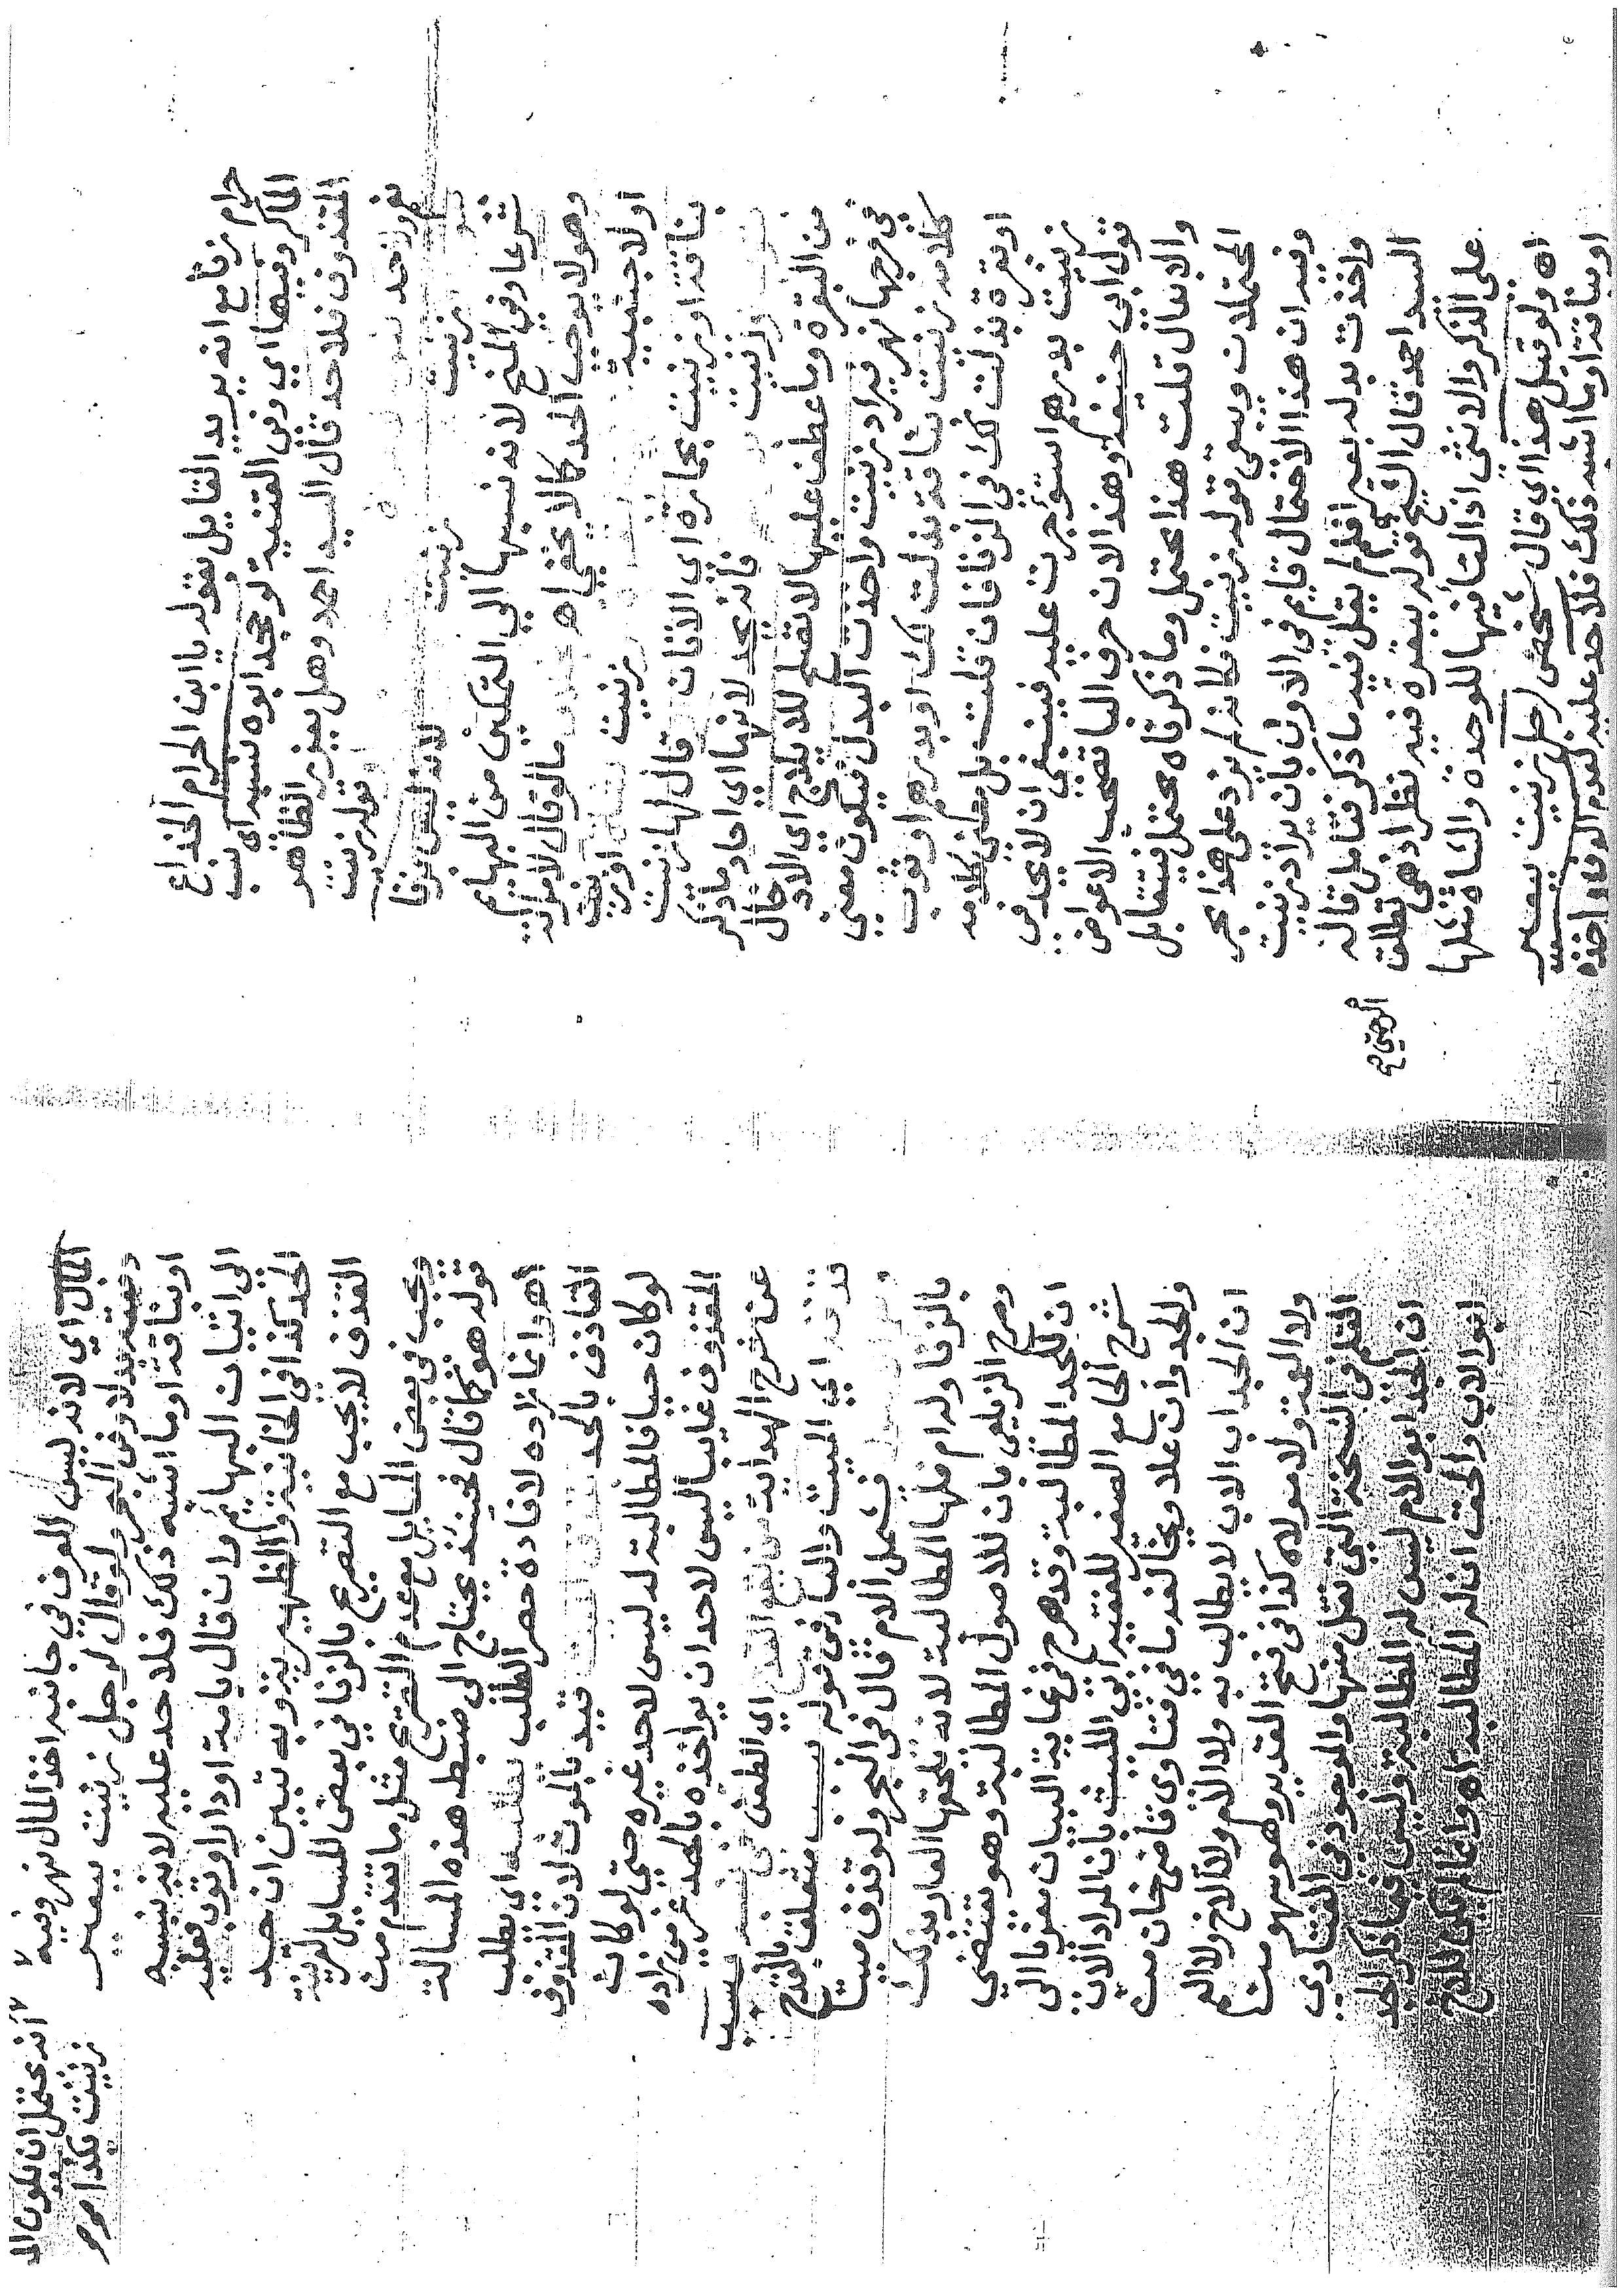 حرام زنا مع انه يريد القايل بقوله يا ابن الحرام الخداع
الماكر وفيها اي وفي القنية لو جحد ابوه نسبه اي نسب
المقذوف فلا حد قال السيد احمد وهل يعزر الظاهر
نعم ولا حد قوله زنيت
لانه ليس بزنا
شرعا وفي المنح لانه نسبها الي التمكين من البهايم
وهو لا يوجب الحد كما لا يخفي اهـ بخلاف ما لو قال لامراة
او لاجنبية زنيت
بناقة او زنيت بحمارة اي الاتان قال لها زنيت
فانه يحد لانها اي احاد ما ذكر
من البقرة وما عطف عليها لا تصلح للايلاج اي الادخال
في فرجها نهر فيراد زنيت واخذت البدل فيكون معني
كلامه زنيت بناقة بذلت لك او بدرهم او ثوب
او بقرة بذلت لك في الزنا فان قلت بل معني كلامه
زنيت بدرهم استؤجرت عليه فينبغي ان لا يحد في
قول ابي حنيفة وهذا لان حرف البا تصحب الاعواض
والابدال قلت هذا محتمل وما ذكرناه محتمل فيتقابل
المحتملان ويبقي قوله زنيت فكانه لم يزد علي هذا بحر
وفيه ان هذا الاحتمال قايم في الاول بان يراد زنيت
واخذت بدله بعيرا فلم يقل فيه ما ذكر فتامل قاله
السيد احمد قال الشيخ قوله ببقرة فيه نظر اذ هي تطلق
الرحمتي صح
علي الذكر والانثي اذ التا فيها للوحدة والشاة مثلها
اه ولو قيل هذا اي قال شخص لرجل زنيت ببعير
او بناقة او ما اشبه ذلك فلا حد عليه لعدم العرف واخذه
المال اي لانه ليس العرف في جانبه اخذ المال نهر وفيه لا
انه يحتمل ان تكون
زنيت بكذا
وفي البحر ولو قال لرجل زنيت ببعير
او بناقة او ما اشبه ذلك فلا حد عليه لانه نسبه
الي اتيان البهايم وان قال بامة او دار او ثوب فعليه
الحد كذا في الخانية والظهيرية وبه تبين ان حد
القذف لا يجب مع التصريح بالزنا في بعض المسايل لقرينة
ويجب في بعض المسايل مع عدم التصريح مثل ما تقدم من
قوله هو كما قال فحينئذ يحتاج الي ضبط هذه المسالة
اهـ وانما زاده لافادة حصر الطلب بطلبه اي يطلب
القاذف بالحد بقذف الميت قيد بالموت لان المقذوف
لو كان حيا فالمطالبة له ليس لاحد غيره حتي لو كان
المقذوف غايبا ليس لاحد ان يواخذه بالحد عزمي زاده
عن شرح الهداية من يقع القدح اي الطعن في نسبه بسبب
قذفه اي الميت والبا في قوله بسبب متعلق بالقدح
فيشمل الام قال في البحر ولو قذف ميتا
بالزنا وله ام فلها المطالبة لانه يلحقها العار بذلك
وصرح الزيلعي بان للاصول المطالبة وهو يقتضي
ان للجد المطالبة وقد صرح في غاية البيان معزيا الي
شرح الجامع الصغير للفقيه ابي الليث بان المراد الاب
والجد وان علا ويخالفه ما في فتاوي قاضي خان من
ان الجد اب الاب لا يطالب به ولا الام ولا الاخ ولا العم
ولا العمة ولا مولاه كذا في فتح القدير وهو سهو من
القلم في النسخة التي نقل منها والموجود في الفتاوي
ان الجد ابو الام ليس له المطالبة وليس فيها ذكر الجد
ابو الاب والحق ان له المطالبة اهـ وانما لم يكن للاخ